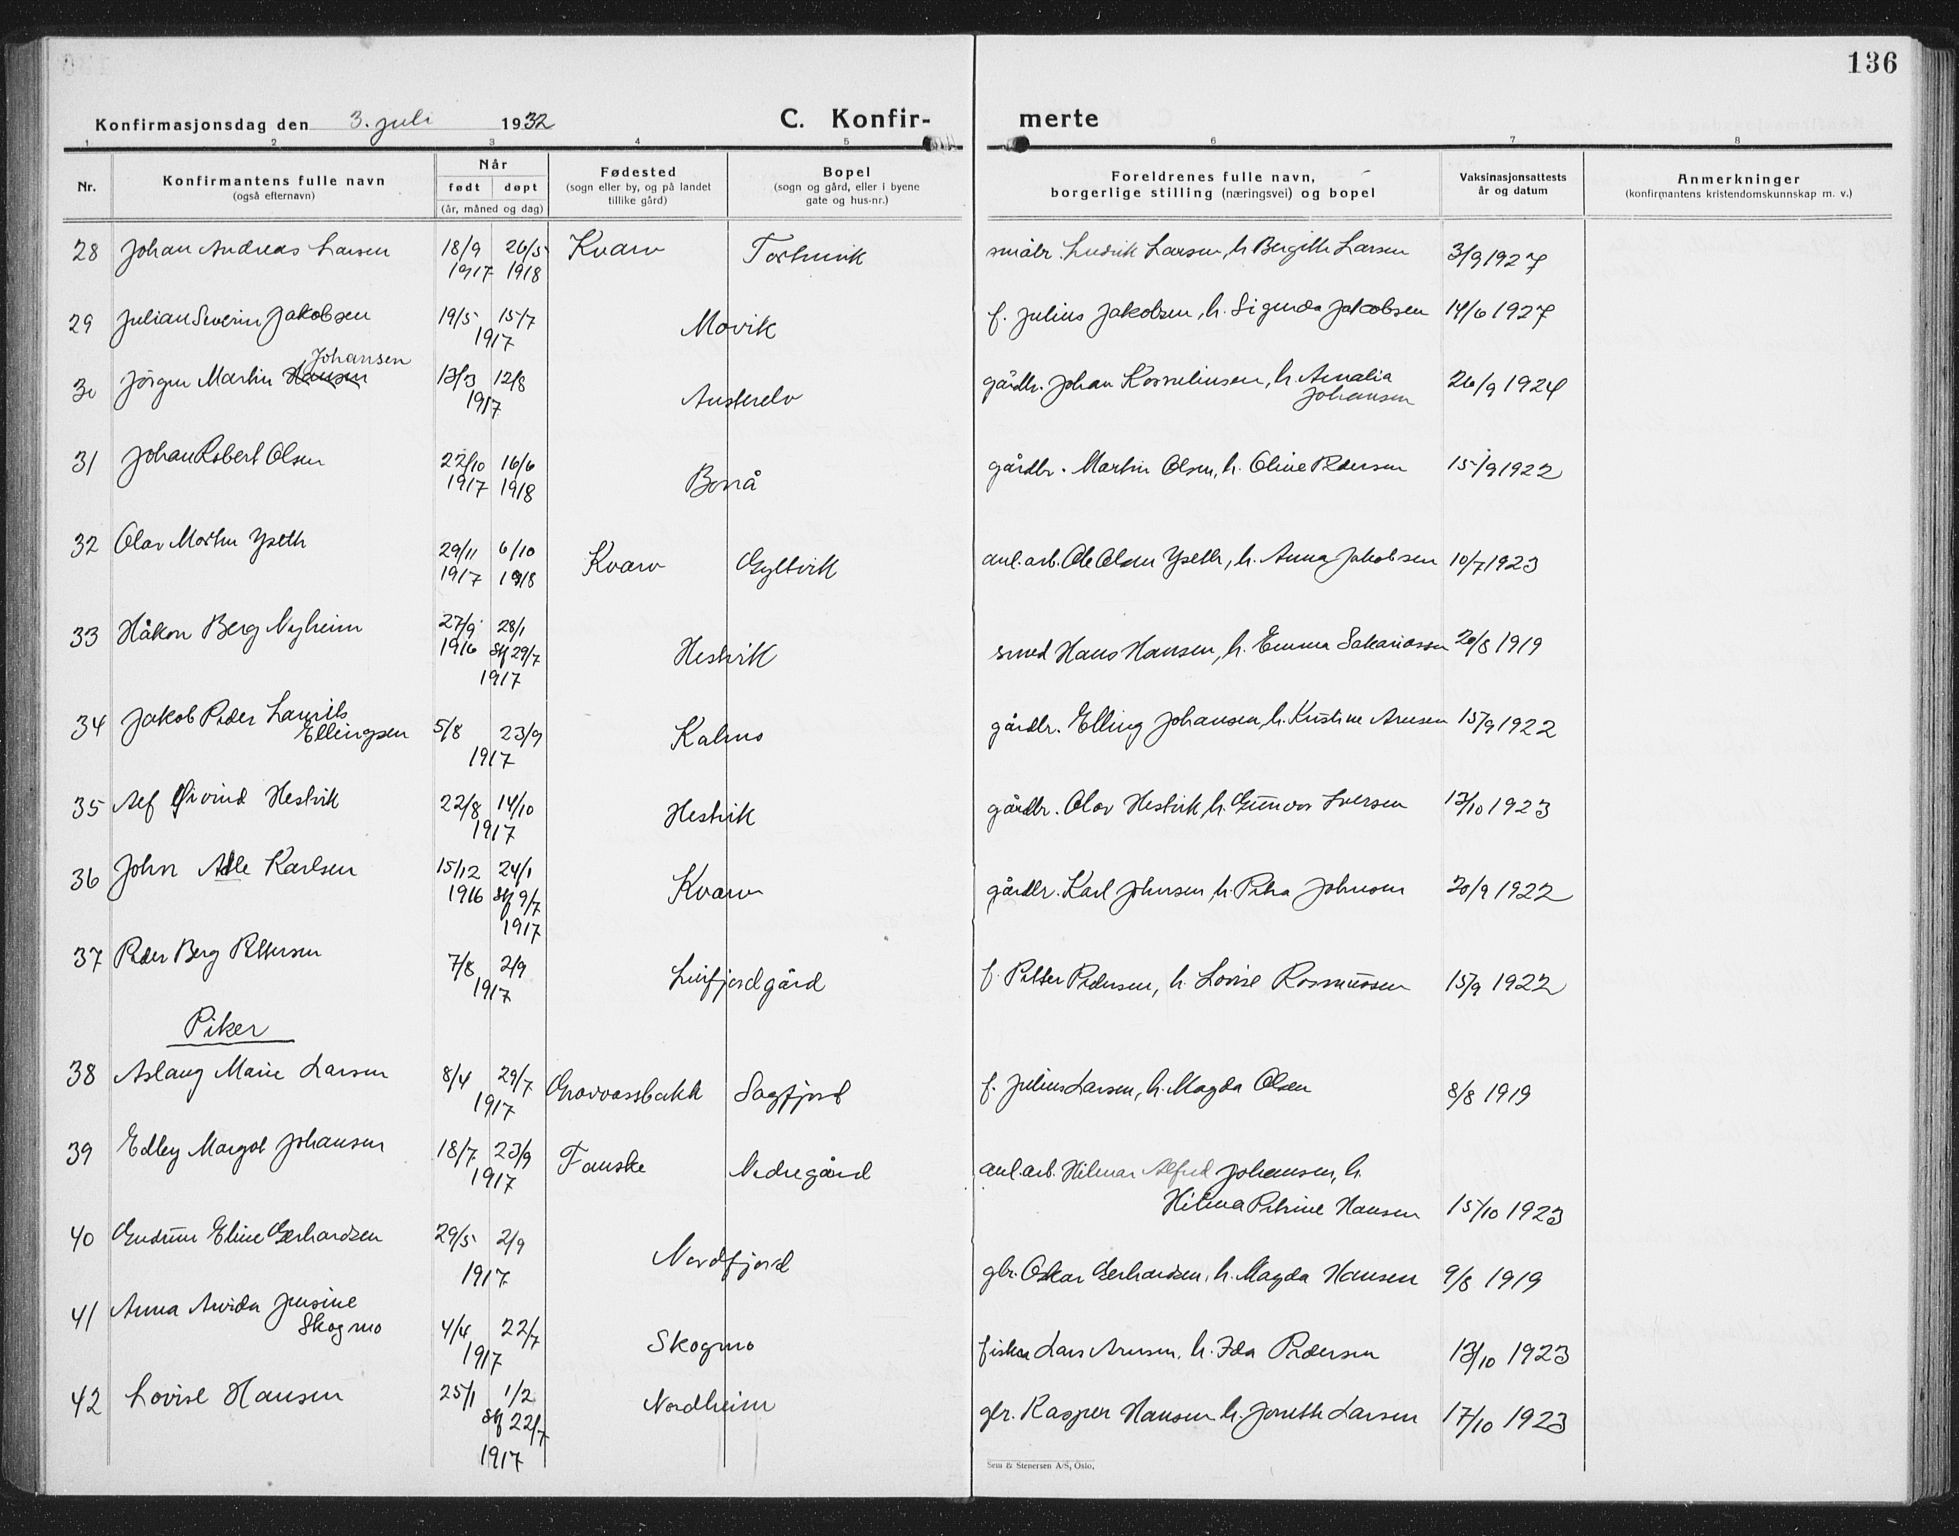 136
Konfirmasjonsdag den 3. juli 1932 C. Konfir- merte
1 2 3 4 5 6 7 8
Nr. Konfirmantens fulle navn (også efternavn) Når født døpt (år, måned og dag) Fødested (sogn eller by, og på landet tillike gård) Bopel (sogn og gård, eller i byene gate og hus-nr.) Foreldrenes fulle navn, borgerlige stilling (næringsvei) og bopel Vaksinasjonsattests år og datum Anmerkninger (konfirmantens kristendomskunnskap m. v.)
28 Johan Andreas Larsen 18/9 1917 26/5 1918 Kvarv Torkilvik småbr. Ludvik Larsen, h. Bergith Larsen 3/9 1927
29 Julian Severin Jakobsen 19/5 15/7 1917 Movik f. Julius Jakobsen, h. Sigurda Jakobsen 14/6 1927
30 Jörgen Martin Hansen Johansen 13/3 12/8 1917 Austerelv gårdbr. Johan Kornelinsen, h. Amalia Johansen 26/9 1924
31 Johan Robert Olsen 22/10 1917 16/6 1918 Bonå gårdbr. Martin Olsen, h. Oline Pedersen 15/9 1922
32 Olav Martin Yseth 29/11 1917 6/10 1918 Kvarv Gyltvik anl.arb. Ole Olsen Yseth, h. Anna Jakobsen 10/7 1923
33 Håkon Berg Nyheim 27/9 1916 28/1 Stf 29/7 1917 Hestvik smed Hans Hansen, h. Emma Sakariassen 20/8 1919
34 Jakob Peder Laurits Ellingsen 5/8 23/9 1917 Kalvås gårdbr. Elling Johansen, h. Kristine Arnesen 15/9 1922
35 Alf Øivind Hestvik 22/8 14/10 1917 Hestvik gårdbr. Olav Hestvik, h. Gunvor Iversen 13/10 1923
36 John Adle Karlsen 15/12 1916 24/1 Stf 9/7 1917 Kvarv gårdbr. Karl Johnsen, h. Petra Johnsen 20/9 1922
37 Peder Berg Pettersen 7/8 2/9 1917 Leirfjordgård f. Petter Pedersen, h. Lovise Rasmussen 15/9 1922
Piker
38 Aslaug Marie Larsen 8/4 29/7 1917 Gravvassbakk Sagfjord f. Julius Larsen, h. Magda Olsen 8/8 1919
39 Edley Margot Johansen 18/7 23/9 1917 Fauske Nedregård anl.arb. Hilmar Alfred Johansen, h.
Hilma Petrine Hansen 15/10 1923
40 Gudrun Eline Gerhardsen 29/5 2/9 1917 Nordfjord gbr. Oskar Gerhardsen, h. Magda Hansen 9/8 1919
41 Anna Arvida Jensine Skogmo 4/4 22/7 1917 Skogmo fisker Lars Arnesen, h. Ida Pedersen 13/10 1923
42 Lovise Hansen 25/1 1/2 Stf 22/7 1917 Nordheim gbr. Kasper Hansen h. Joneth Larsen 17/10 1923
Sem & Stenersen A/S, Oslo.